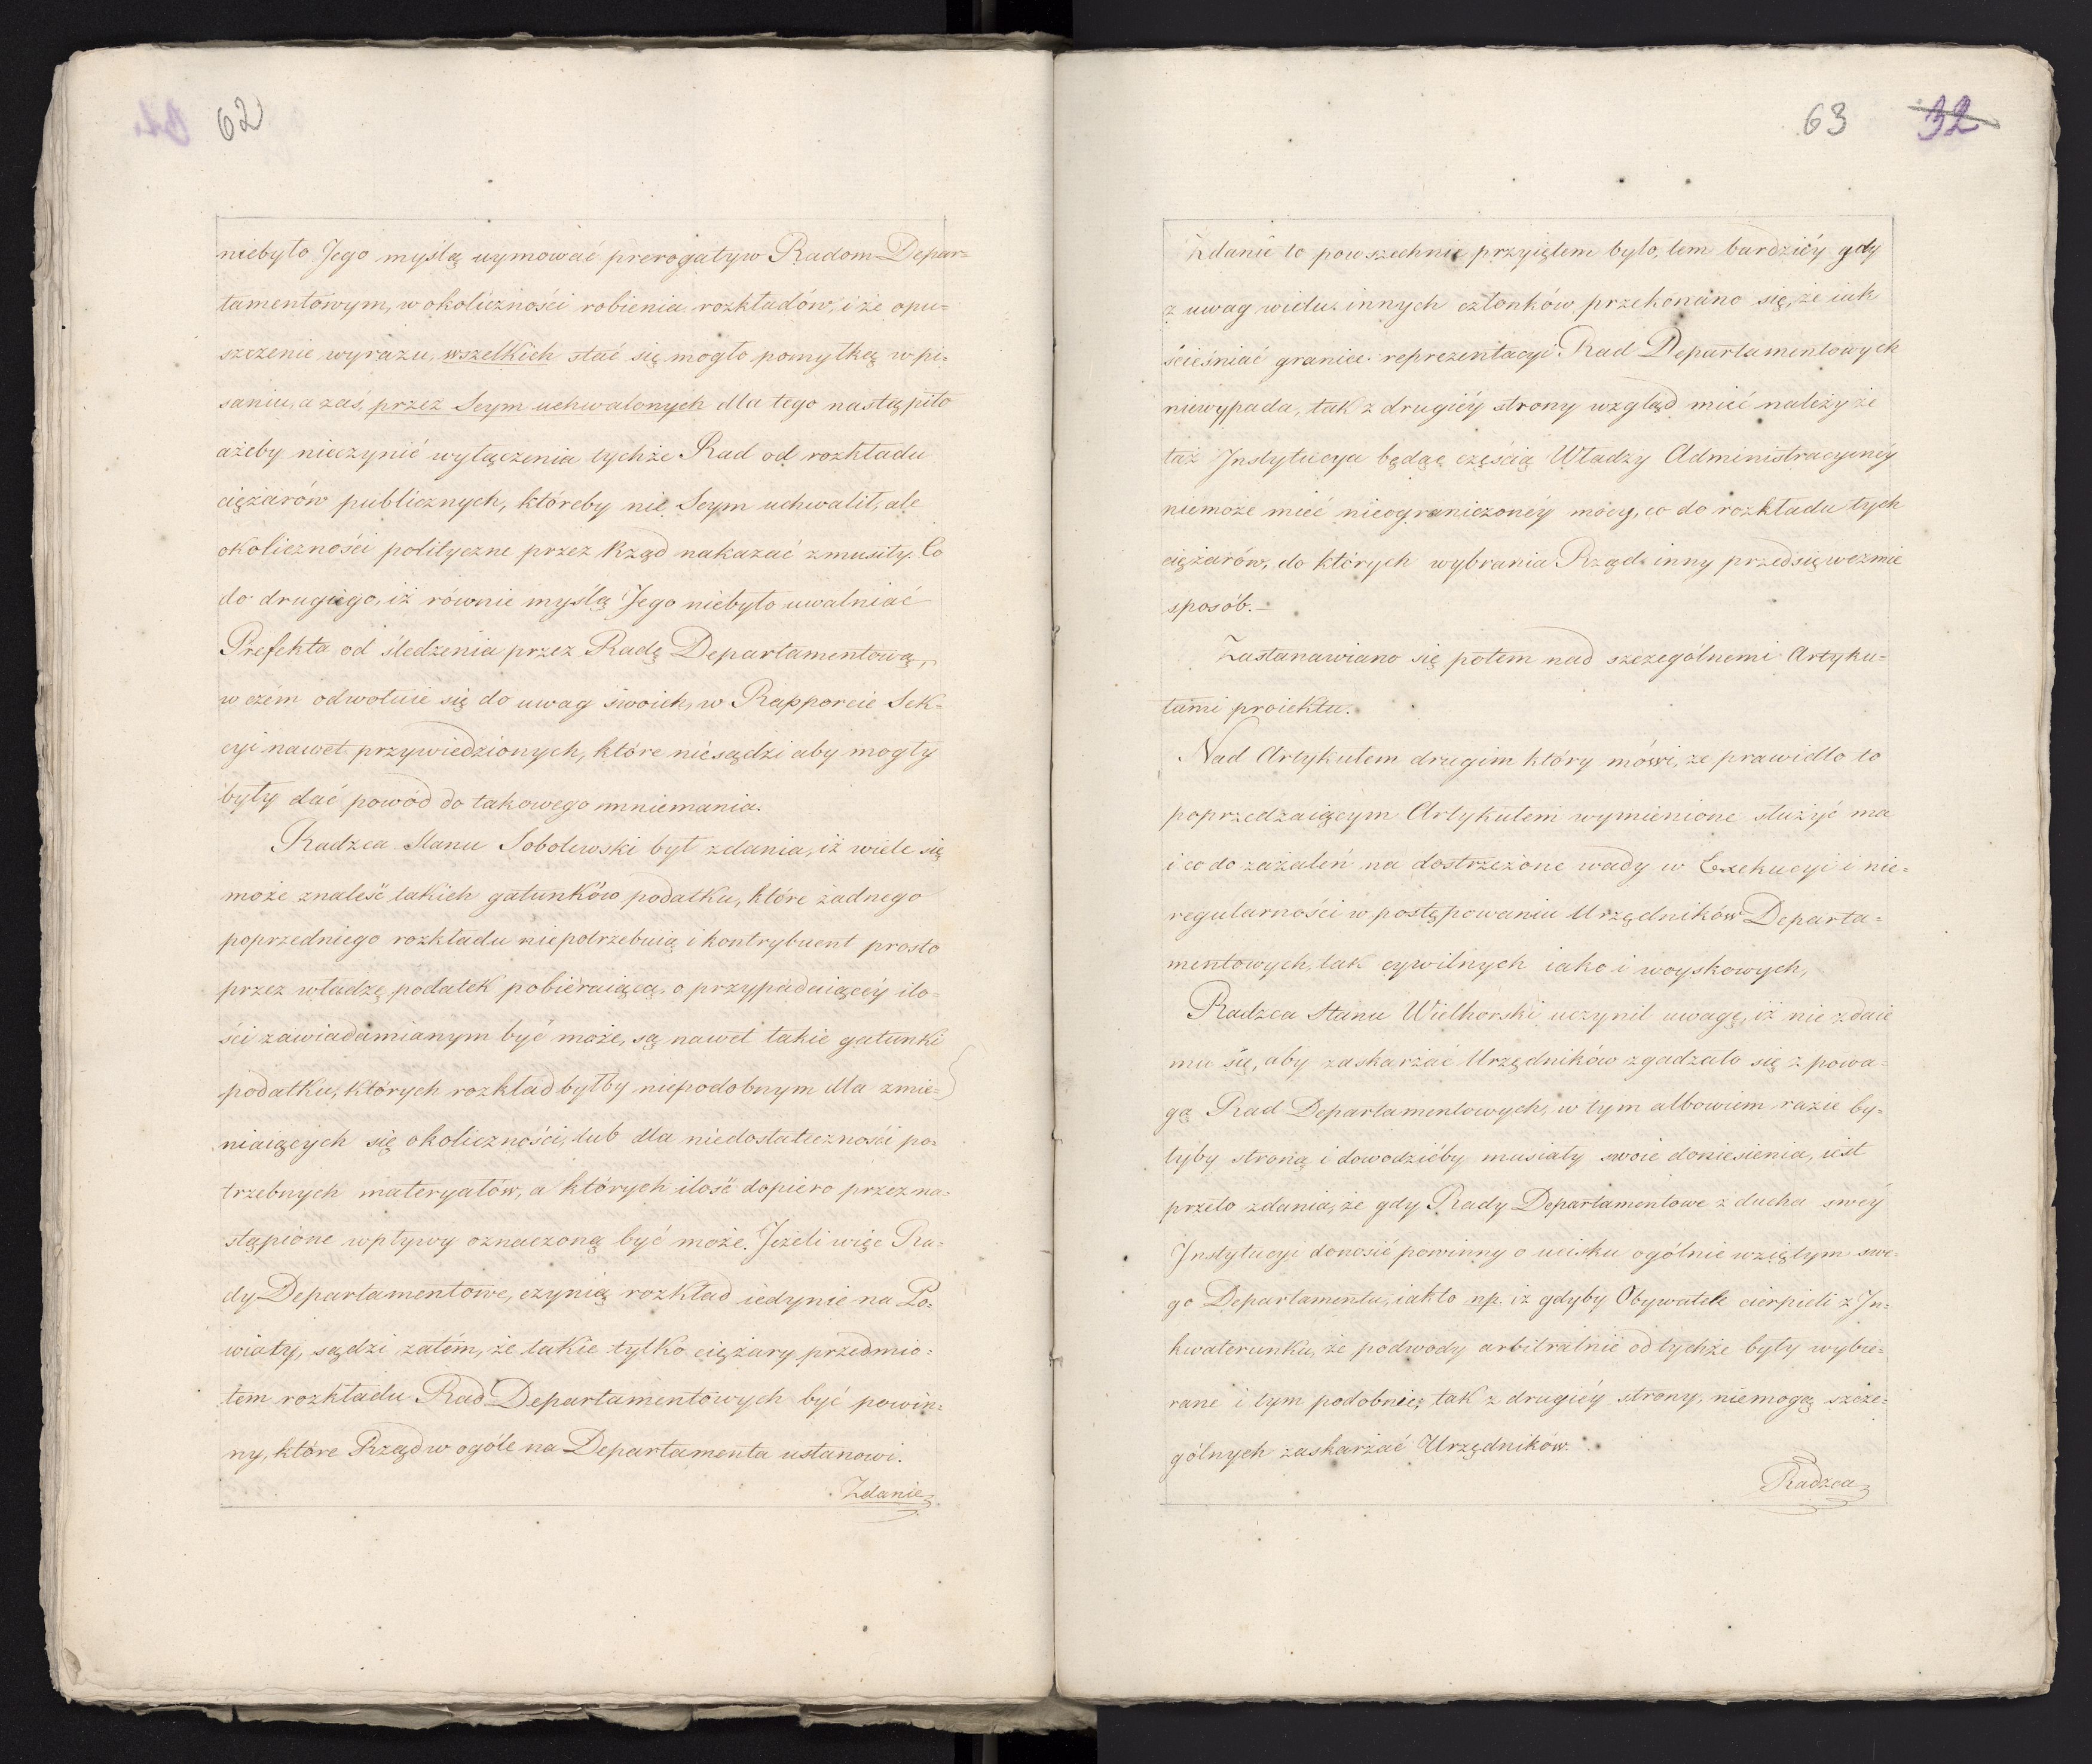 62
niebyło Jego myślą uymować prerogatyw Radom Depar=
tamentowym, w okoliczności robienia rozkładów, i że opu=
szczenie wyrazu, wszelkich stać się mogło pomyłką w pi=
saniu, a zaś, przez Seym uchwalonych dla tego nastąpiło
ażeby nieczynić wyłączenia tychże Rad od rozkładu
ciężarów publicznych, któreby nie Seym uchwalił, ale
okoliczności polityczne przez Rząd nakazać zmusiły. Co
do drugiego, iż równie myślą Jego niebyło uwalniać
Prefekta od śledzenia przez Radę Departamentową,
w czém odwołuie się do uwag swoich, w Rapporcie Sek=
cyi nawet przywiedzionych, które niesądzi aby mogły
były dać powód do takowego mniemania.
Radzca Stanu Sobolewski był zdania, iż wiele się
może znaleść takich gatunków podatku, które żadnego
poprzedniego rozkładu niepotrzebuią i kontrybuent prosto
przez władzę podatek pobieraiącą, o przypadaiącéy ilo=
ści zawiadamianym być może, są nawet takie gatunki
podatku, których rozkład byłby niepodobnym dla zmie=
niaiących się okoliczności, lub dla niedostateczności po=
trzebnych materyałów, a których ilość dopiero przez na=
stąpione wpływy oznaczoną być może. Jeżeli więc Ra=
dy Departamentowe, czynią rozkład iedynie na Po=
wiaty, sądzi zatém, że takie tylko ciężary przedmio=
tem rozkładu Rad Departamentowych być powin=
ny, które Rząd w ogóle na Departamenta ustanowi.
Zdanie
63 32
Zdanie to powszechnie przyiętem było, tem bardziéy gdy
z uwag wielu innych członków przekonano się, że iak
ścieśniać granice reprezentacyi Rad Departamentowych
niewypada, tak z drugiéy strony wzgląd mieć należy że
taż Instytucya będąc częścią Władzy Administracyinéy
niemoże mieć nieograniczonéy mocy, co do rozkładu tych
ciężarów, do których wybrania Rząd inny przedsięweźmie
sposób.
Zastanawiano się potem nad szczególnemi Artyku=
łami proiektu.
Nad Artykułem drugim który mówi, że prawidło to
poprzedzaiącym Artykułem wymienione służyć ma
i co do zażaleń na dostrzeżone wady w Exekucyi i nie=
regularności w postępowaniu Urzędników Departa=
mentowych, tak cywilnych iako i woyskowych,
Radzca Stanu Wielhorski uczynił uwagę, iż nie zdaie
mu się, aby zaskarżać Urzędników zgadzało się z powa=
gą Rad Departamentowych, w tym albowiem razie by=
łyby stroną i dowodziéby musiały swoie doniesienia, iest
przeto zdania, że gdy Rady Departamentowe z ducha swéy
Instytucyi donosić powinny o ucisku ogólnie wziętym swe=
go Departamentu, iakto np. iż gdyby Obywatele cierpieli z In=
kwaterunku, że podwody arbitralnie od tychże były wybie=
rane i tym podobnie; tak z drugiéy strony, niemogą szcze=
gólnych zaskarżać Urzędników.
Radzca